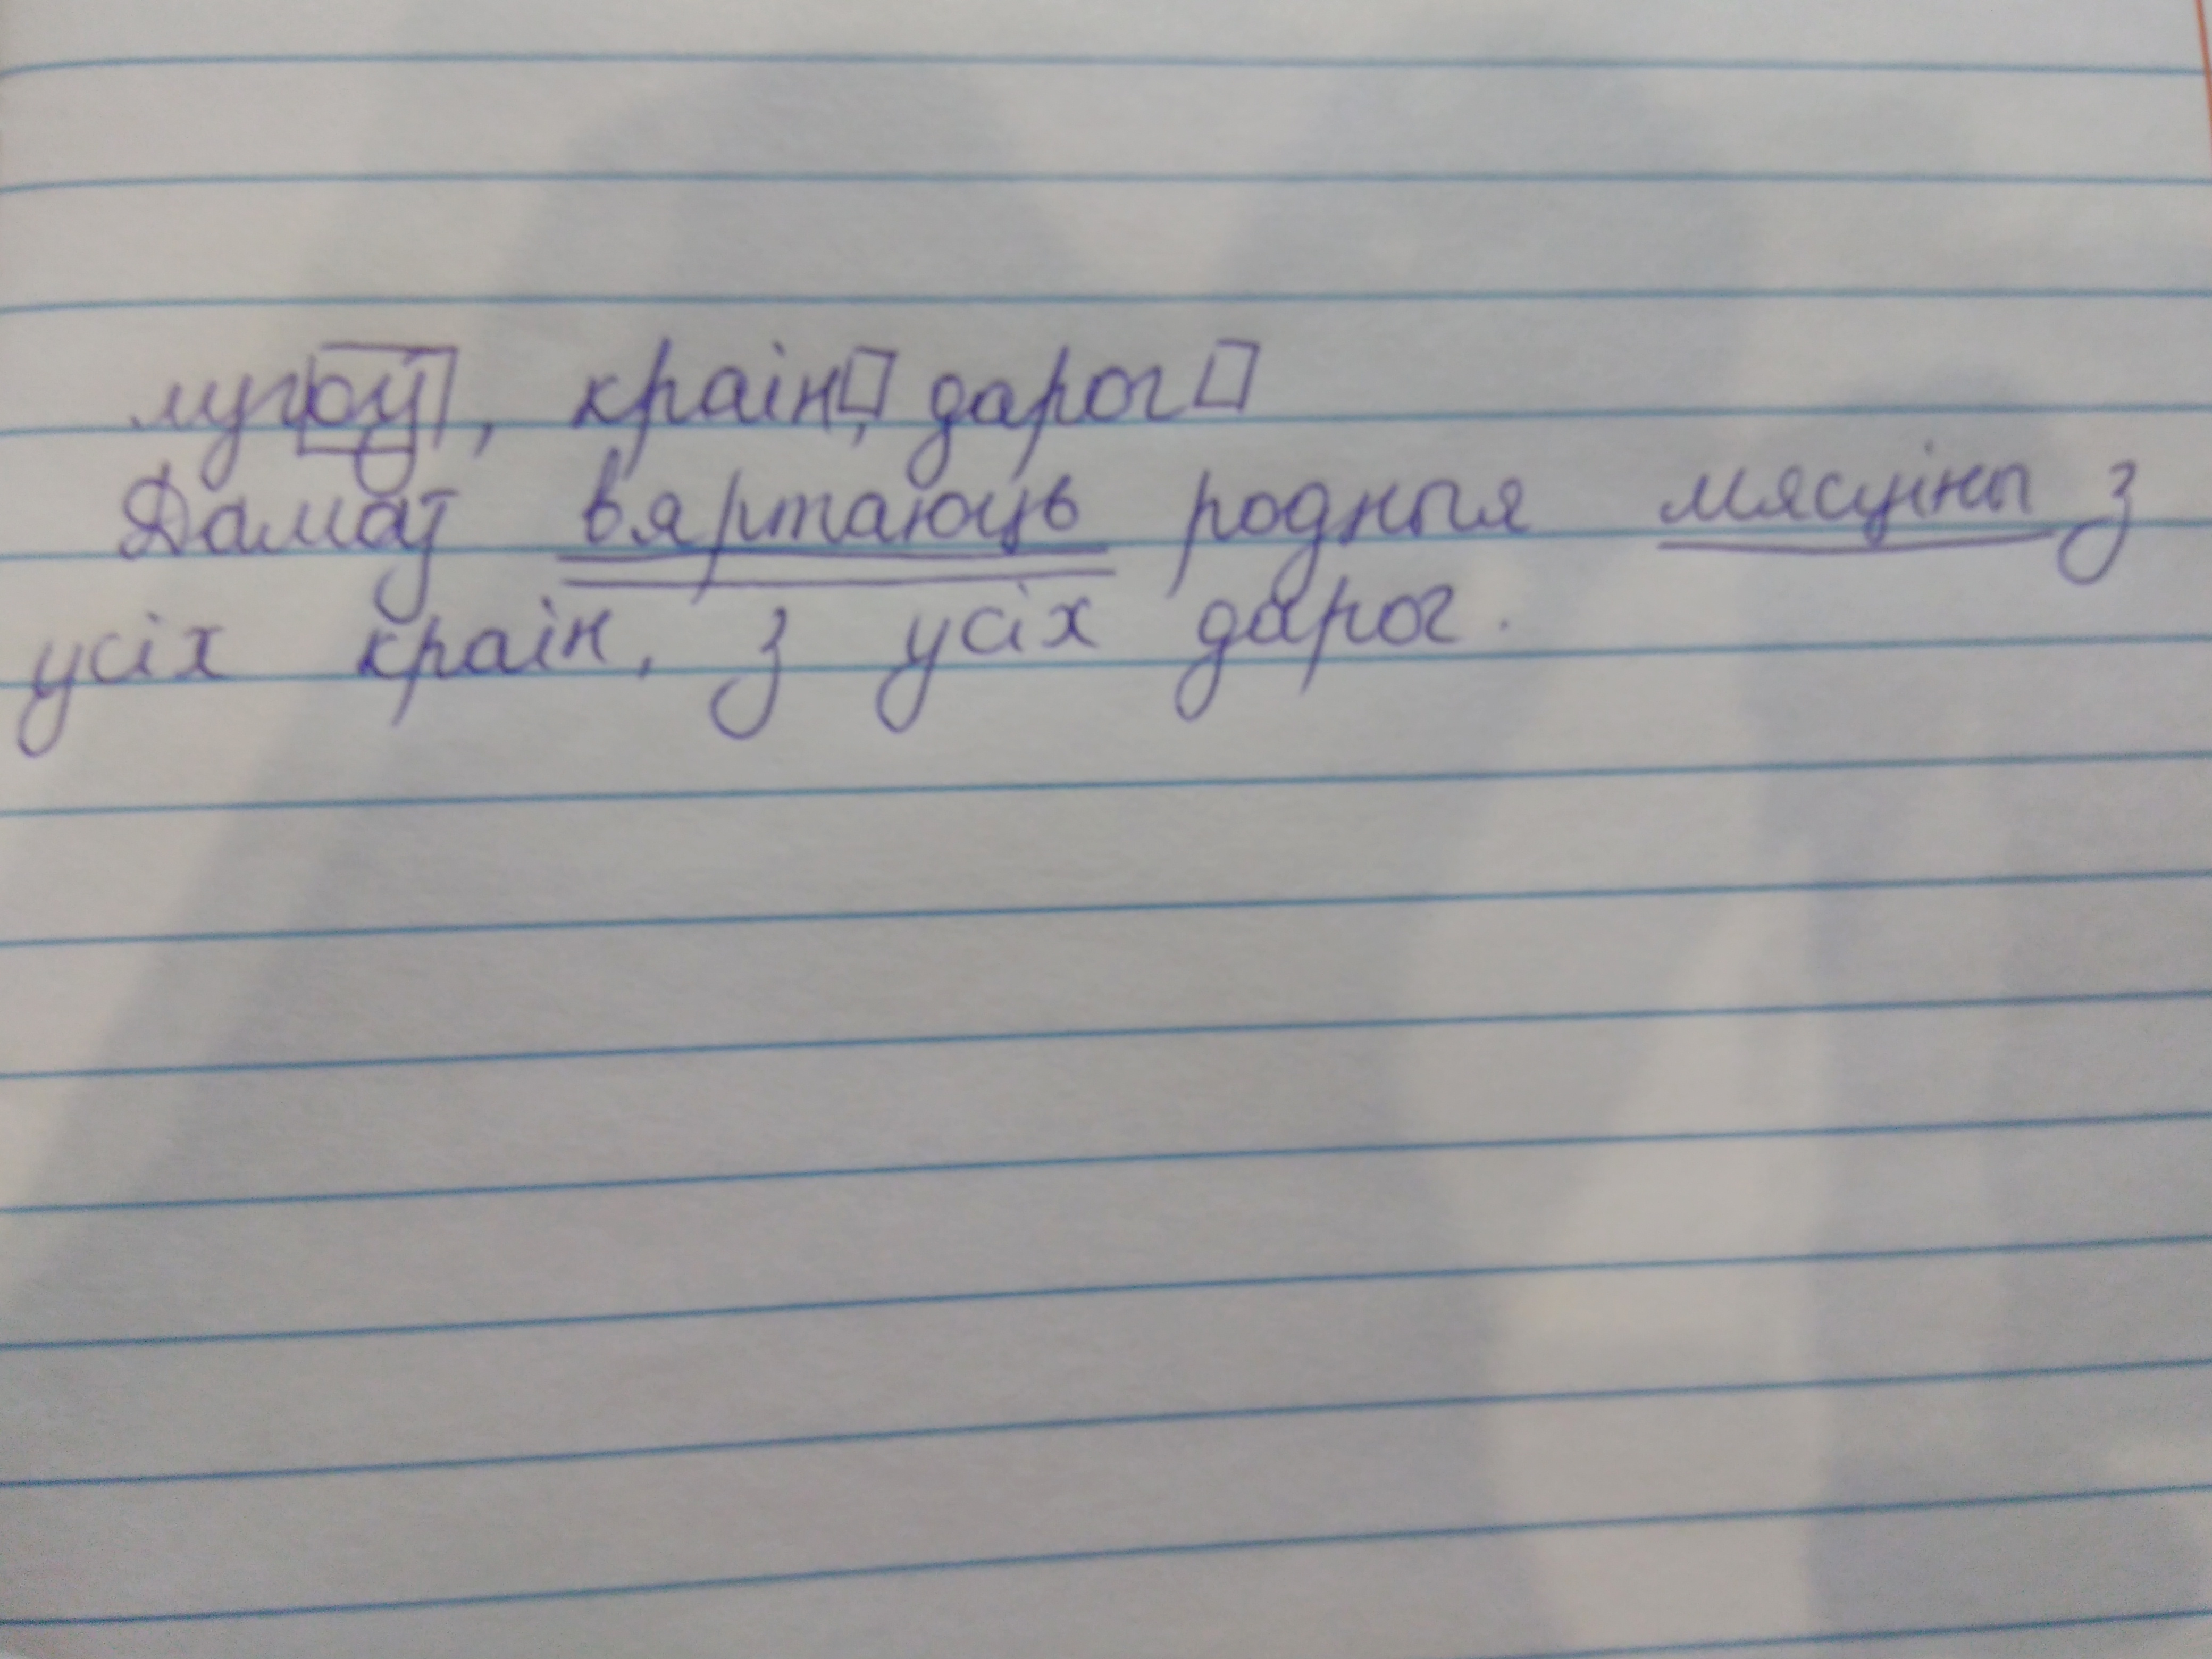 лугоў, краін, дарог
Дамоў вяртаюць родныя мясціны з
усіх краін, з усіх дарог.